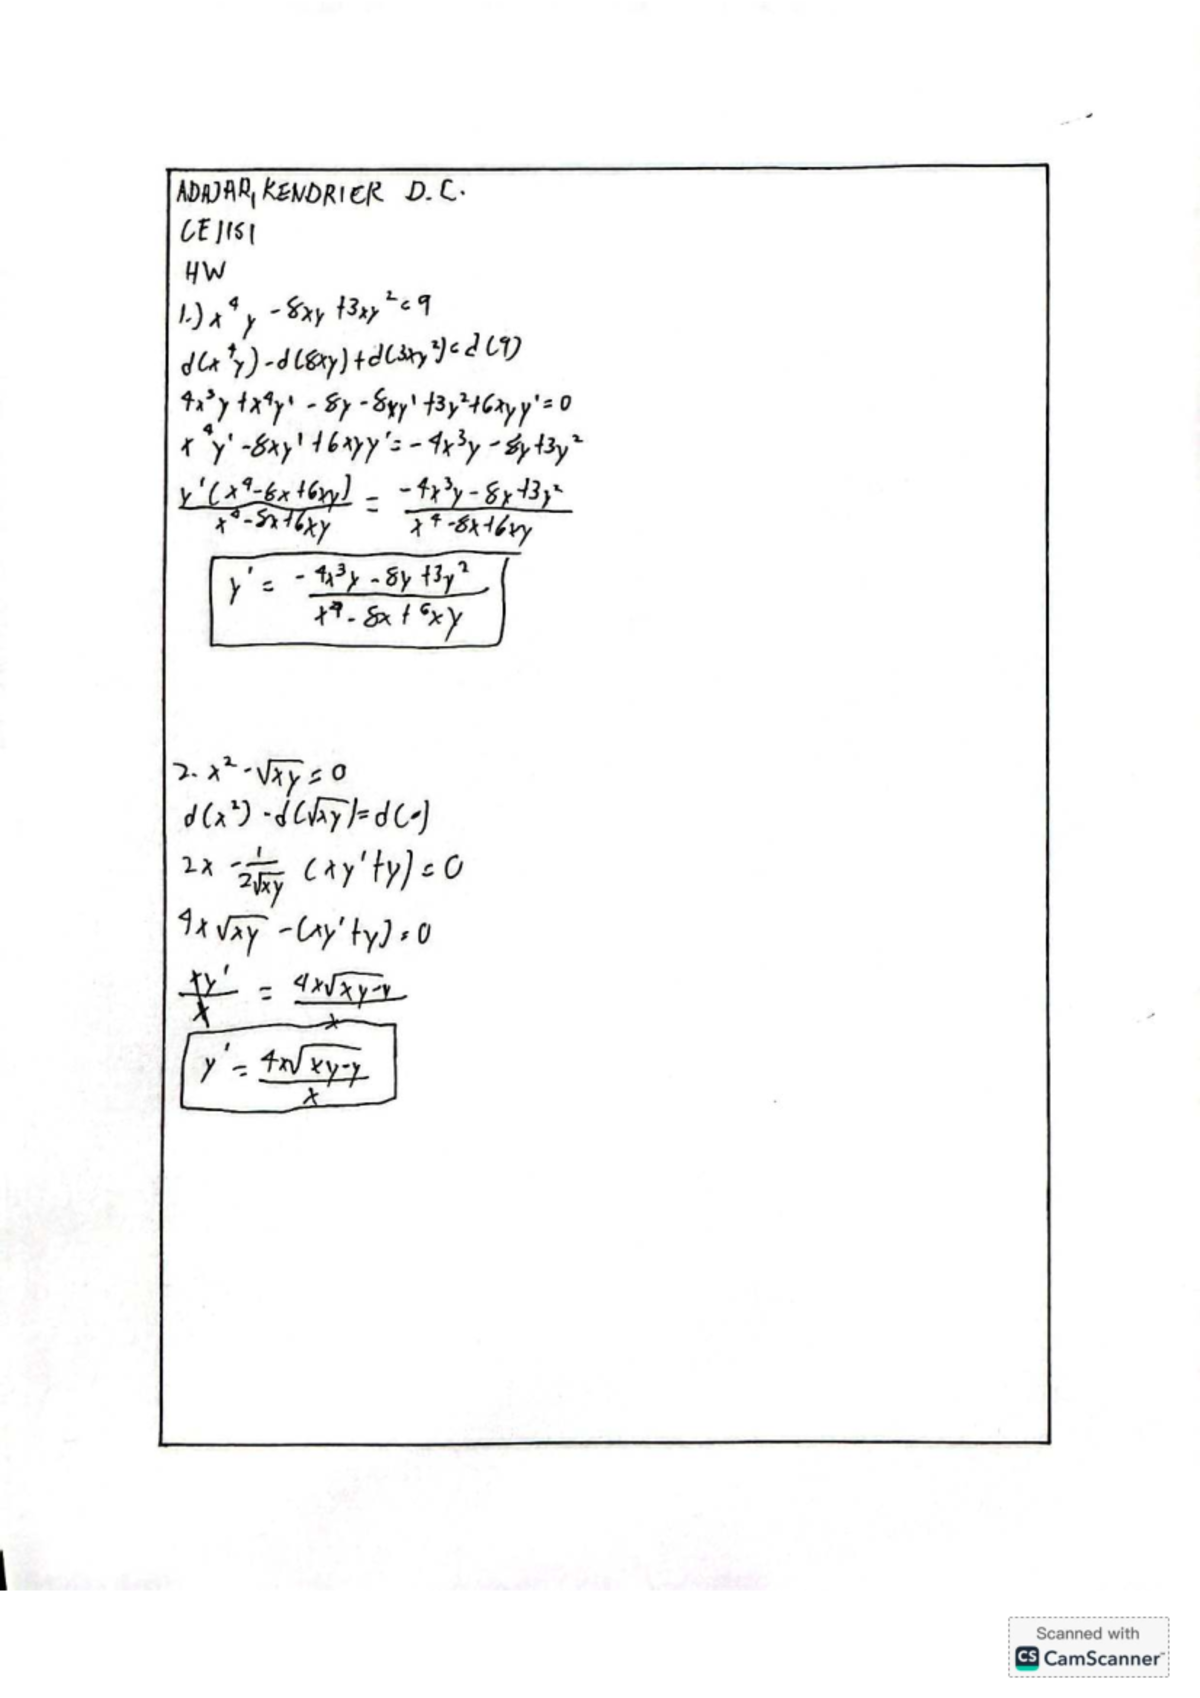 ADAJAR, KENDRIER D.C.
CE1151
HW
1.) x⁴y - 8xy + 3xy² = 9
d(x⁴y) - d(8xy) + d(3xy²) = d(9)
4x³y + x⁴y' - 8y - 8xy' + 3y² + 6xyy' = 0
x⁴y' - 8xy' + 6xyy' = -4x³y - 8y + 3y²
y'(x⁴ - 8x + 6xy) / x⁴ - 8x + 6xy = -4x³y - 8y + 3y² / x⁴ - 8x + 6xy
y' = -4x³y - 8y + 3y² / x⁴ - 8x + 6xy
2. x² - √xy = 0
d(x²) - d(√xy) = d(0)
2x - 1/2√xy (xy' + y) = 0
4x√xy - (xy' + y) = 0
xy'/x = 4x√xy-y / x
y' = 4x√xy-y / x
Scanned with
CS CamScanner